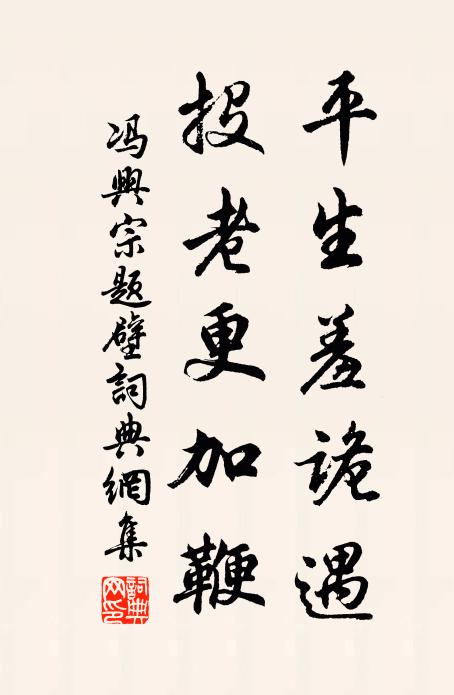 平生羞詭遇
投老更加鞭
冯興宗題壁詞典網集
詞典網印